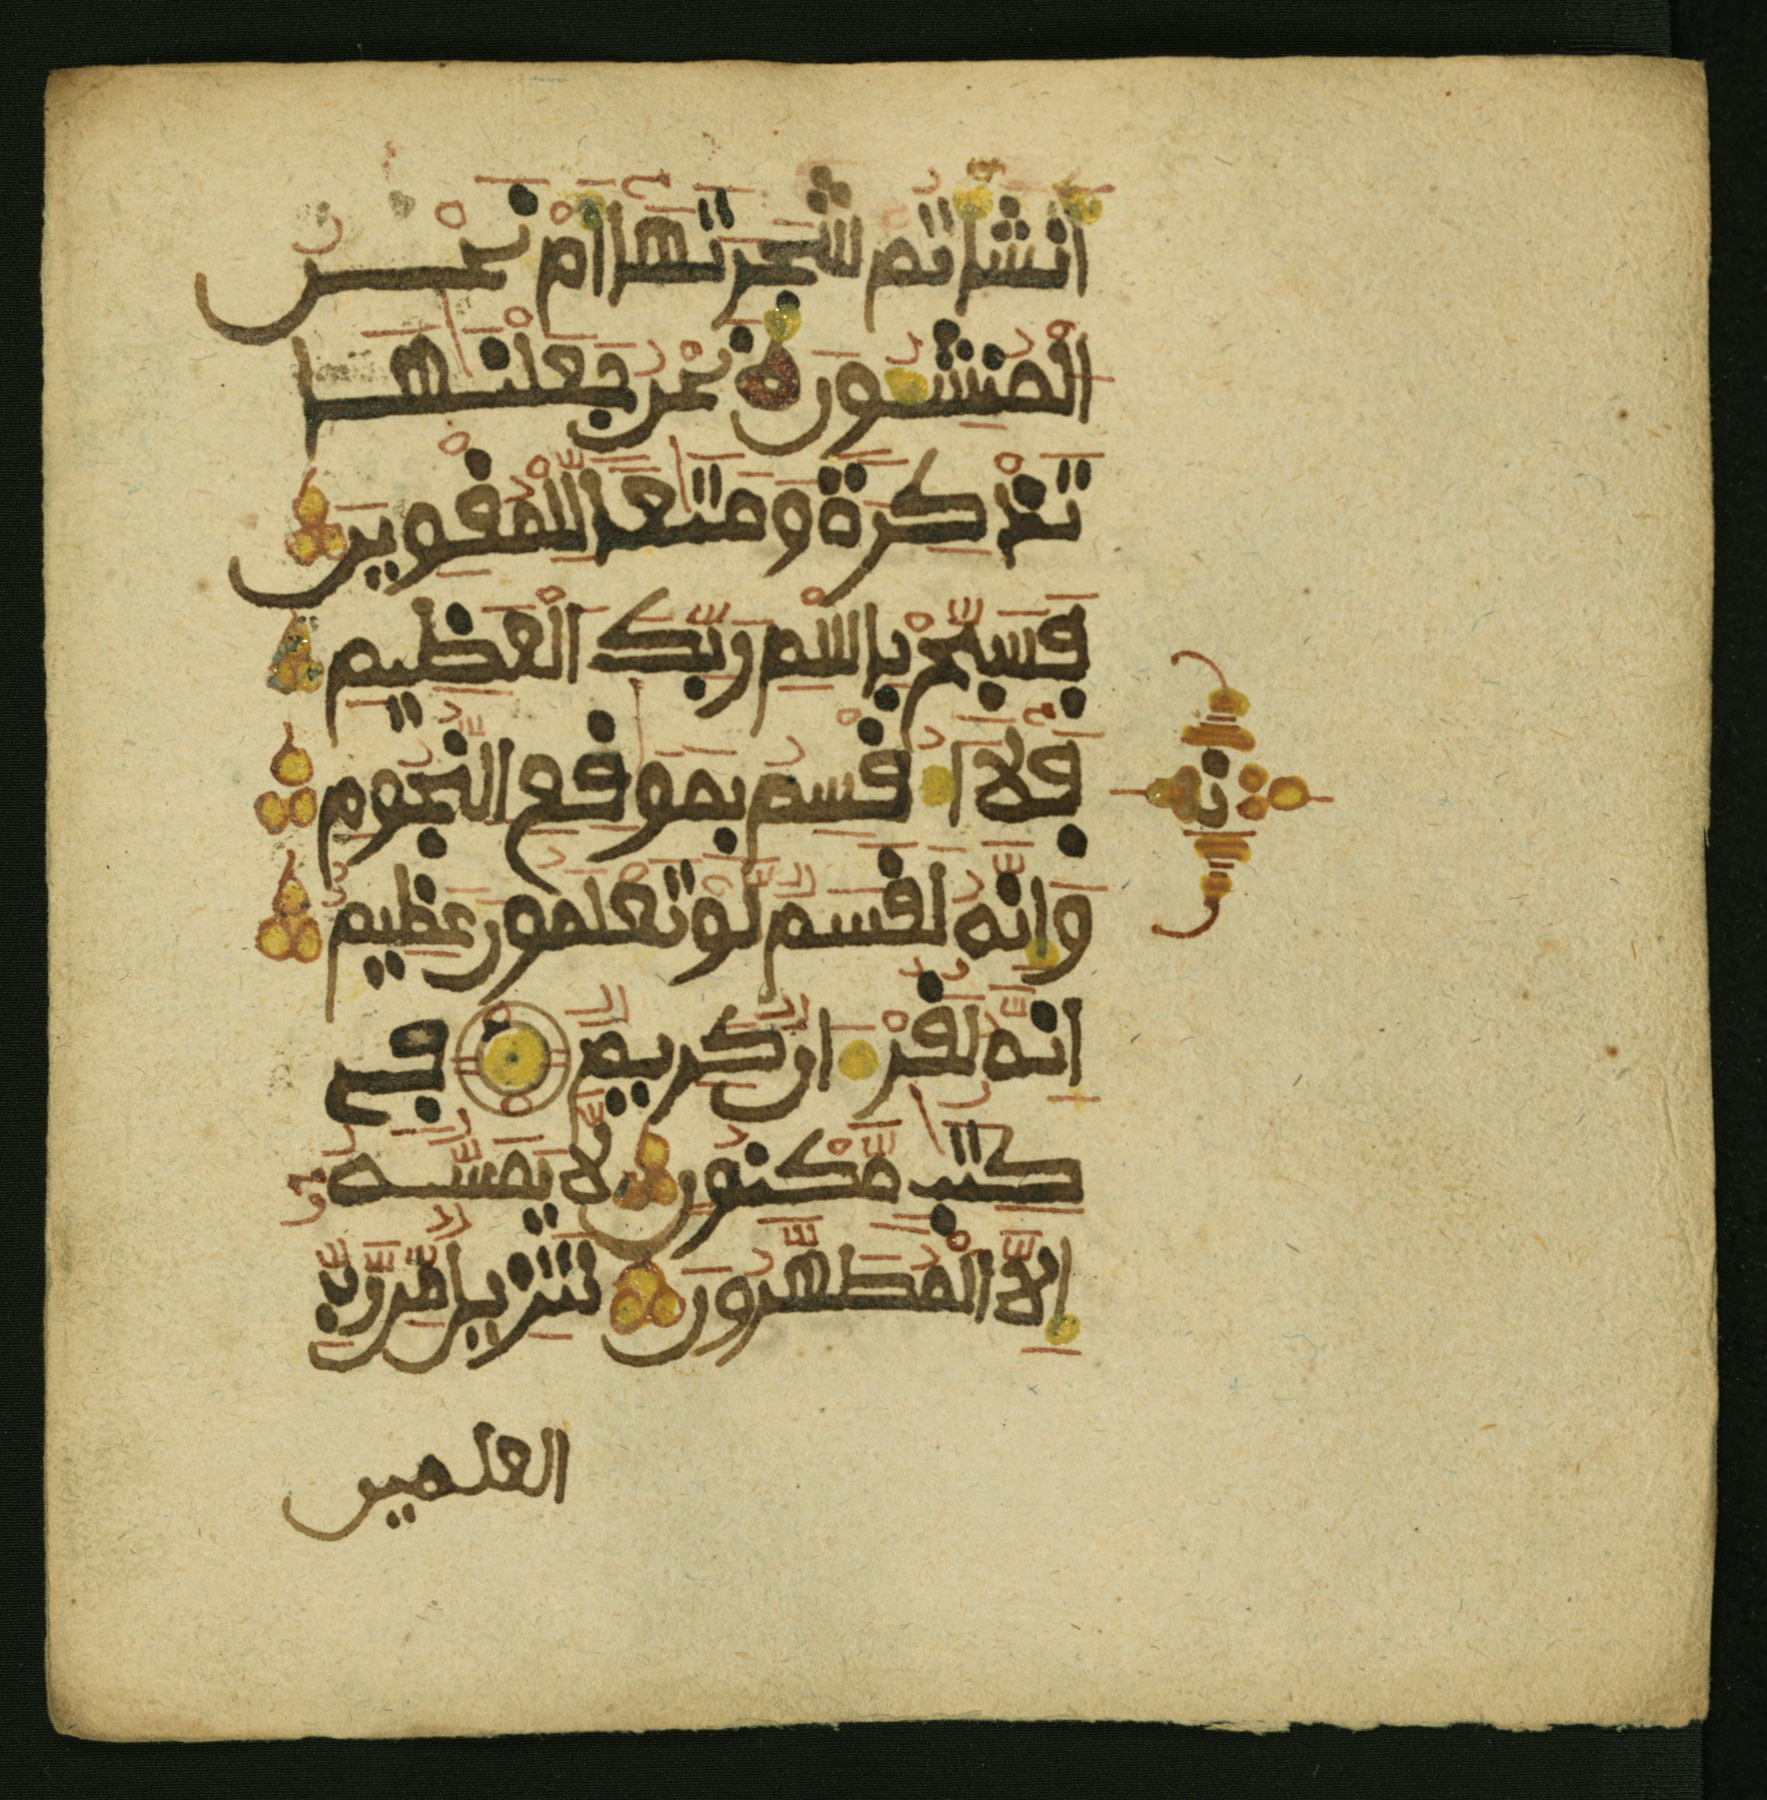 أَنشَأْتُمْ شَجَرَتَهَا أَمْ نَحْنُ
الْمُنشِـُٔونَ نَحْنُ جَعَلْنَٰهَا
تَذْكِرَةً وَمَتَٰعًا لِّلْمُقْوِينَ
فَسَبِّحْ بِاسْمِ رَبِّكَ الْعَظِيمِ
فَلَا أُقْسِمُ بِمَوَٰقِعِ النُّجُومِ
ثمن
وَإِنَّهُ لَقَسَمٌ لَّوْ تَعْلَمُونَ عَظِيمٌ
إِنَّهُ لَقُرْءَانٌ كَرِيمٌ فِي
كِتَٰبٍ مَّكْنُونٍ لَّا يَمَسُّهُ
إِلَّا الْمُطَهَّرُونَ تَنزِيلٌ مِّن رَّبِّ
العلمين